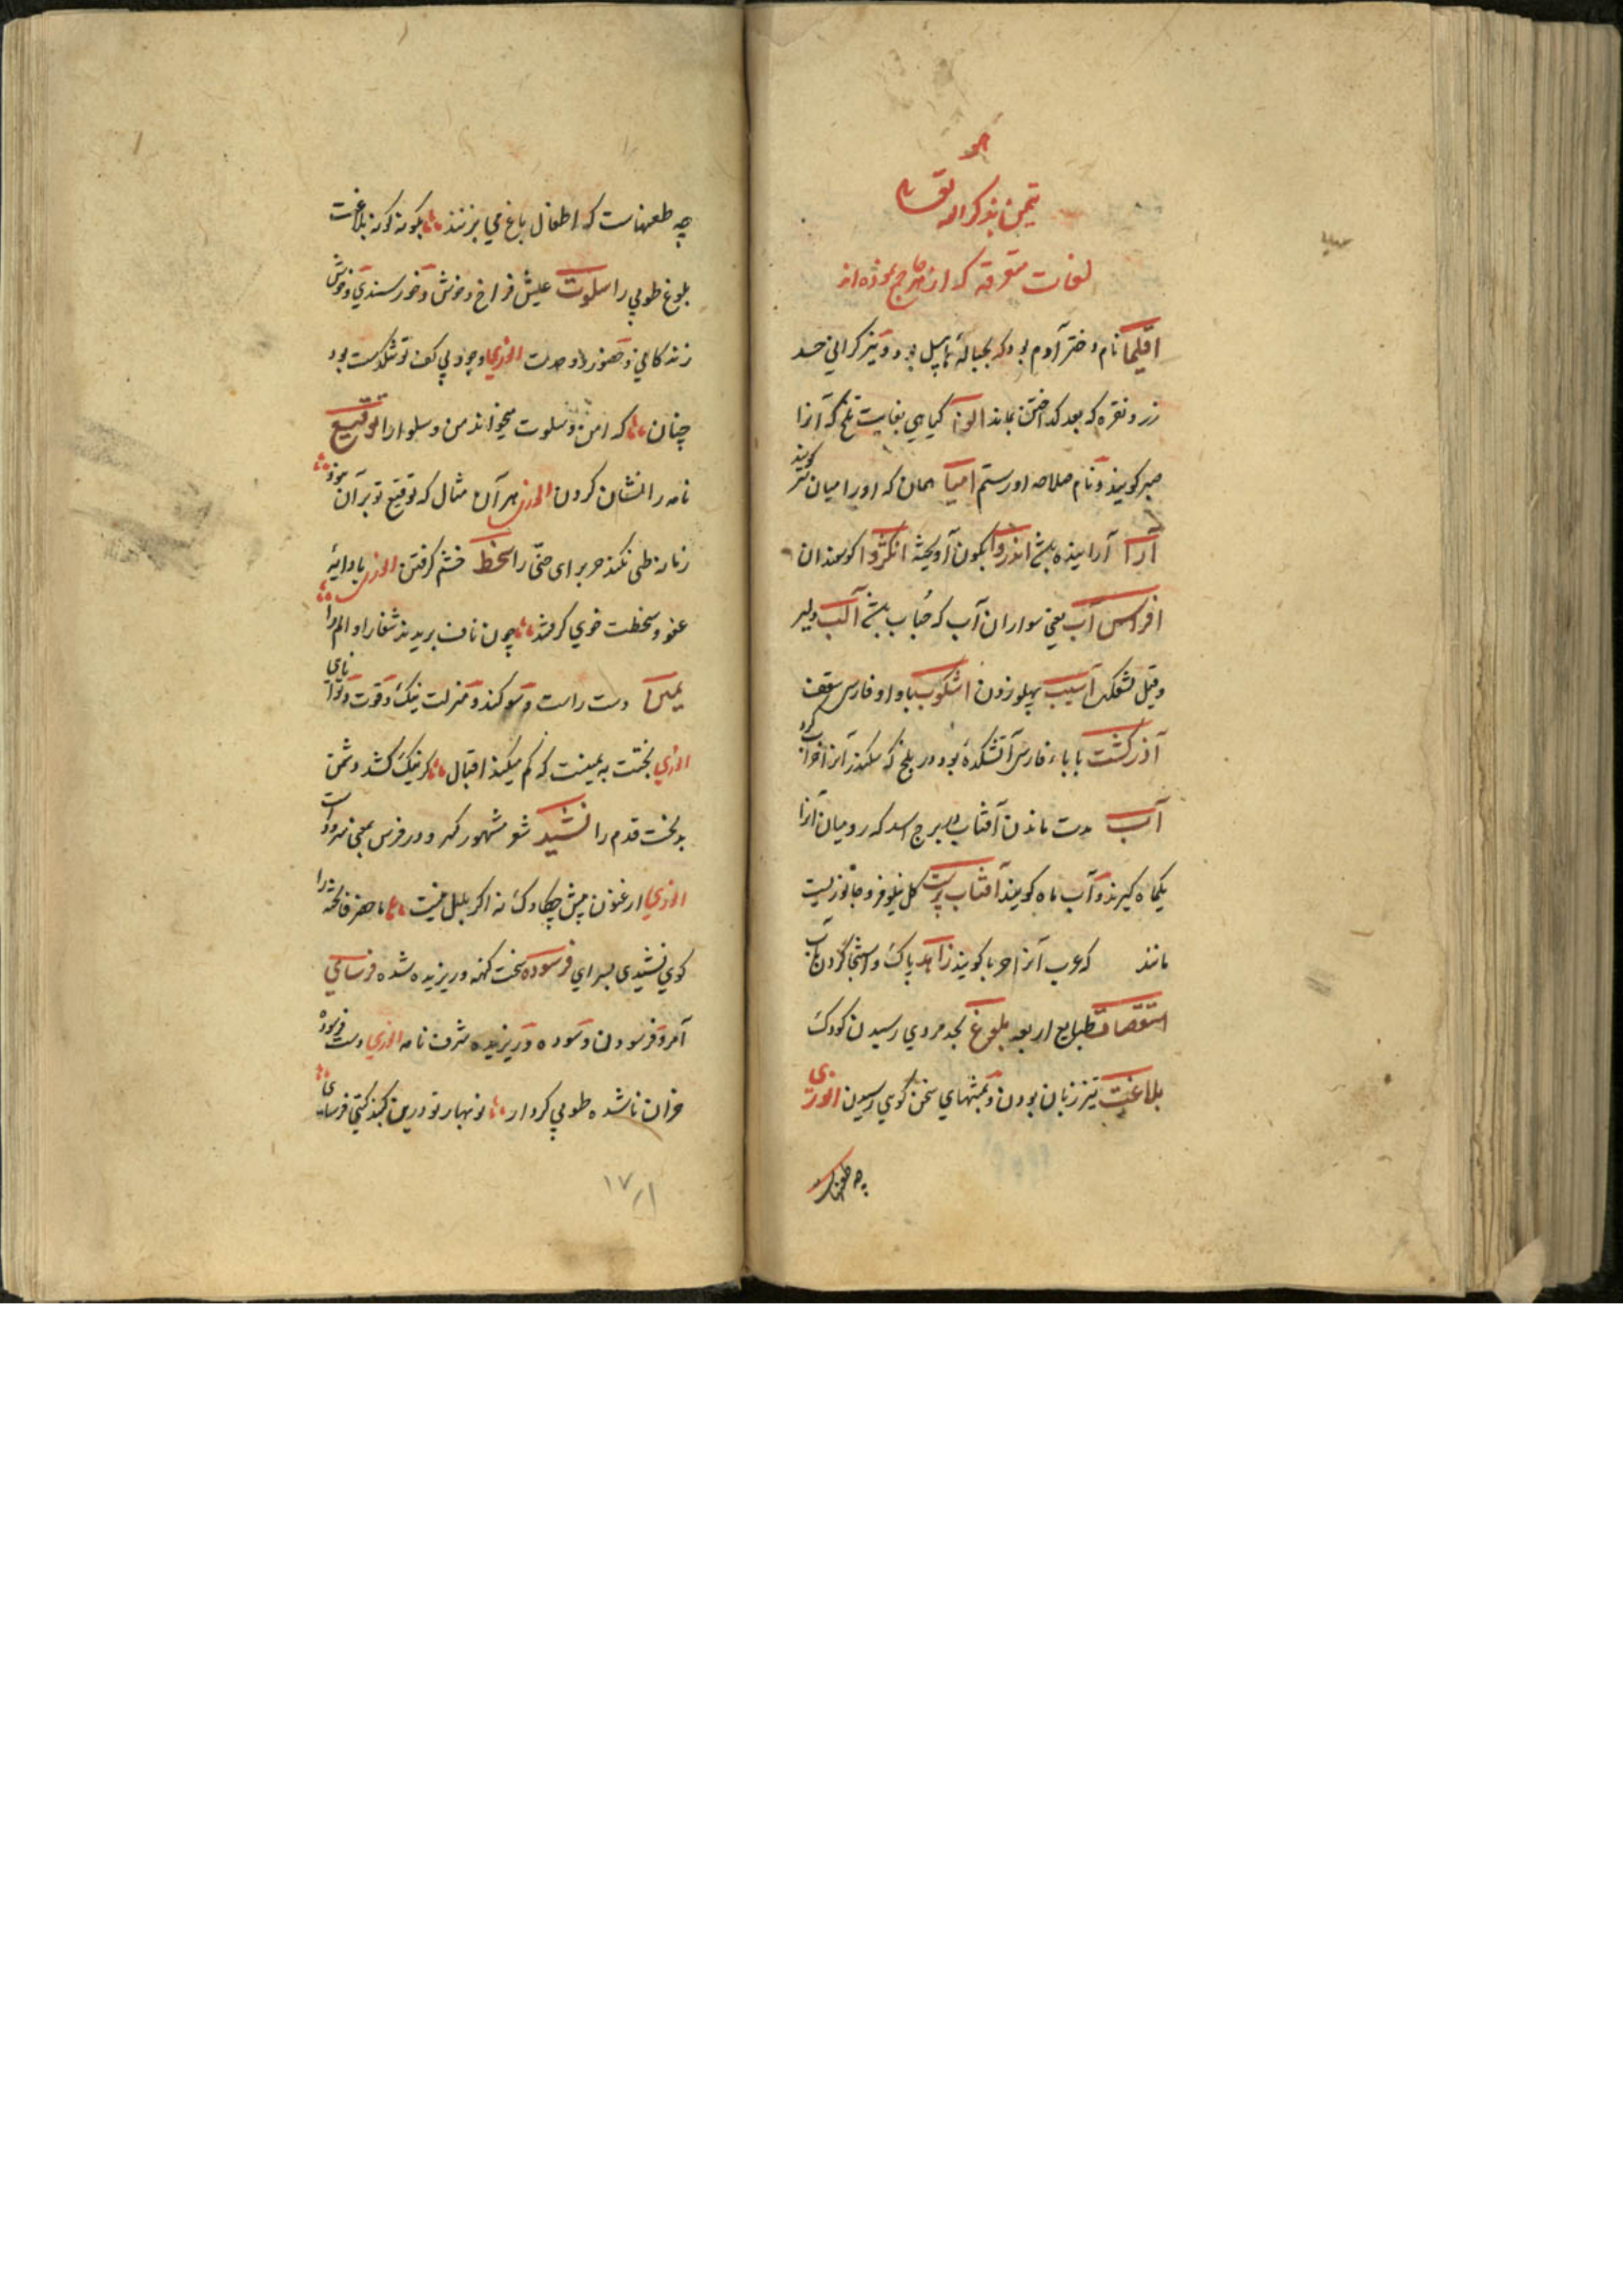 هو
تیمن بذکر الله تعالی
لغات متفرقه که از هرجا جمع نموده اند
اقلیما نام دختر آدم بود که بحبالهٔ هابیل بود و نیز گرانی حد
زر و نقره که بعد گداختن بماند الوا گیاهی بغایت تلخ که آنرا
صبر گویند و نام صلاحه اور ستم امیا همان که او را میان نیز گویند
آرا آراینده باشد اندروا بگون آویخته انگژوا گوسمندان
افراس آب یعنی سواران آب که حباب باشد آلب دلیر
وقیل آسیب پهلو زدن اشکوب بباو او فارسی سقف
آذر گشت با باء فارسی آتشکدهٔ بود در بلخ که سکندر آنرا خراب کرد
آب مدت ماندن آفتاب در برج اسد که رومیان آنرا
یکماه گیرند و آب ماه گویند آفتاب پرست گل نیلوفر و جانوریست
مانند که عرب آنرا حربا گویند زاهد پاک و استنجا کردن بآب
استقصات طبایع اربعه بلوغ بحد مردی رسیدن کودک
بلاغت تیز زبان بودن و بمنتهای سخن گویی رسیدن انوری
چه طعنهاست
چه طعنهاست که اطفال باغ می بزنند بگونه گونه بلاغت
بلوغ طوبی را سلوت عیش فراخ و خوش و خورسندی و خوش
زندگانی و حضور و وحدت انوری وجود بی کف تو تنگدست بود
چنان که امن و سلوت میخواند من و سلوا را توقیع
نامه را نشان کردن انوری هر آن مثال که توقیع تو بر آن نبود
زمانه طی نکند جز برای حنّی را سخط خشم گرفتن انوری با دایهٔ
عفو و سخطت خوی گرفتند چون ناف بریدند شفا را و الم را
یمین دست راست و سوگند و منزلت نیک و قوت و توانای
انوری بختت به یمینت که کم میکند اقبال گر نیک کشد دشمن
بدبخت قدم را نشید شو مشهور کر و در فرس بمعنی سرود است
انوری ارغنون پیش چکاوک نه اگر بلبل نیست ما حضر فاخته را
گوی نشیدی بسرای فرسوده سخت کهنه و ریزیده شده فرسای
آمر و فرسودن و سوده و ریزیده شرف نامه انوری دست فرسوده
خزان ناشده طوبی کردار نوبهار تو درین گنبد گیتی فرسای
١٧